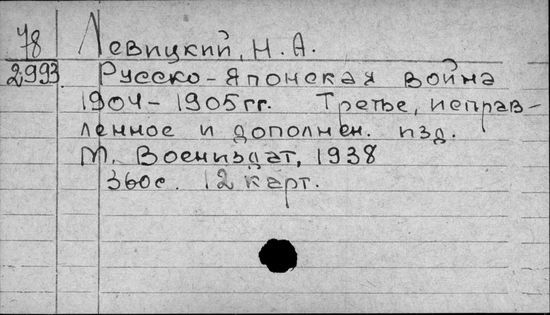 78 Левицкий, Н. А.
2993 Русско-Японская война
1904-1905 гг. Третье, исправ-
ленное и дополнен. изд.
М. Воениздат, 1938
360 с. 12 карт.